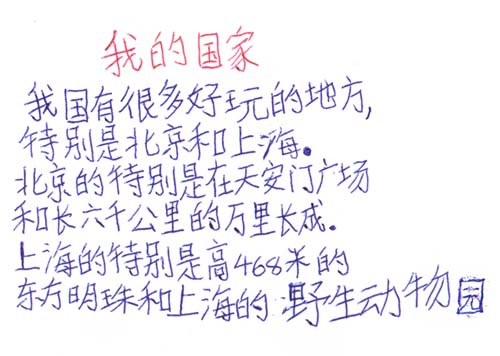 我的国家
我国有很多好玩的地方,
特别是北京和上海.
北京的特别是在天安门广场
和长六千公里的万里长成.
上海的特别是高468米的
东方明珠和上海的野生动物园